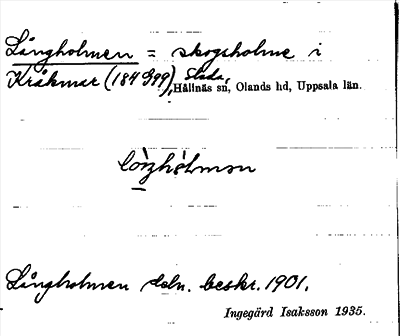 Långholmen = skogsholme i
Kråkmar (184 899), Slada,
Hållnäs sn, Olands hd, Uppsala län.
Långholmen beskr. 1901.
Ingegärd Isaksson 1935.